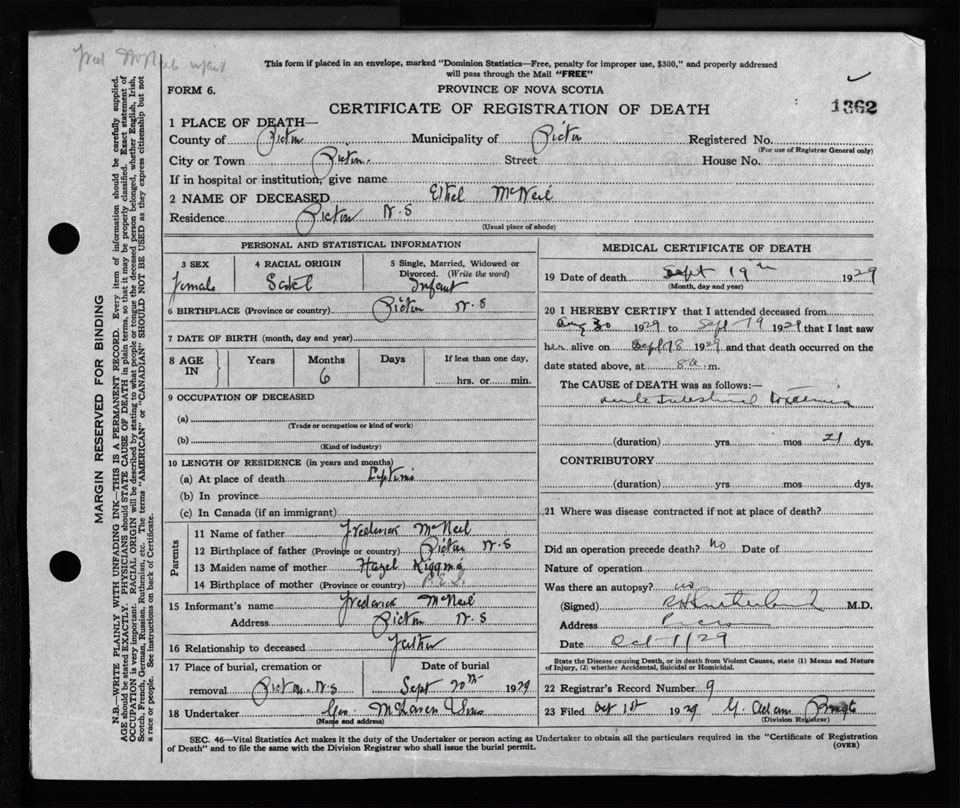 Fred McNeil infant
This form if placed in an envelope, marked "Dominion Statistics—Free, penalty for improper use, $300," and properly addressed
will pass through the Mail "FREE"
FORM 6.
PROVINCE OF NOVA SCOTIA
1362
CERTIFICATE OF REGISTRATION OF DEATH
1 PLACE OF DEATH—
County of Pictou Municipality of Pictou Registered No.
(For use of Registrar General only)
City or Town Pictou Street House No.
If in hospital or institution, give name
2 NAME OF DECEASED Ethel McNeil
Residence Pictou N.S
(Usual place of abode)
PERSONAL AND STATISTICAL INFORMATION
3 SEX
Female
4 RACIAL ORIGIN
5 Single, Married, Widowed or
Divorced. (Write the word)
Infant
6 BIRTHPLACE (Province or country) Pictou N.S
7 DATE OF BIRTH (month, day and year)
8 AGE IN
Years Months Days If less than one day,
6 hrs. or min.
9 OCCUPATION OF DECEASED
(a)
(Trade or occupation or kind of work)
(b)
(Kind of industry)
10 LENGTH OF RESIDENCE (in years and months)
(a) At place of death
(b) In province
(c) In Canada (if an immigrant)
Parents
11 Name of father Frederick McNeil
12 Birthplace of father (Province or country) Pictou N.S
13 Maiden name of mother Hazel
14 Birthplace of mother (Province or country) P.E.I.
15 Informant's name Frederick McNeil
Address Pictou N.S
16 Relationship to deceased Father
17 Place of burial, cremation or Date of burial
removal Pictou N.S Sept 20th 1929
18 Undertaker Geo McLaren & Sons
(Name and address)
MEDICAL CERTIFICATE OF DEATH
19 Date of death Sept 19th 1929
(Month, day and year)
20 I HEREBY CERTIFY that I attended deceased from
Aug 30 1929 to Sept 19 1929 that I last saw
her alive on Sept 18 1929 and that death occurred on the
date stated above, at 8 a. m.
The CAUSE of DEATH was as follows:—
Acute Intestinal
(duration) yrs mos 21 dys.
CONTRIBUTORY
(duration) yrs mos dys.
21 Where was disease contracted if not at place of death?
Did an operation precede death? No Date of
Nature of operation
Was there an autopsy? no
(Signed) Sutherland M.D.
Address Pictou
Date Oct 1/29
State the Disease causing Death, or in death from Violent Causes, state (1) Means and Nature
of Injury, (2) whether Accidental, Suicidal or Homicidal.
22 Registrar's Record Number 9
23 Filed Oct 1st 1929 G. Adam
(Division Registrar)
SEC. 46—Vital Statistics Act makes it the duty of the Undertaker or person acting as Undertaker to obtain all the particulars required in the "Certificate of Registration
of Death" and to file the same with the Division Registrar who shall issue the burial permit.
(OVER)
MARGIN RESERVED FOR BINDING
N.B.—WRITE PLAINLY WITH UNFADING INK—THIS IS A PERMANENT RECORD. Every item of information should be carefully supplied.
AGE should be stated EXACTLY. PHYSICIANS should STATE CAUSE OF DEATH in plain terms, so that it may be properly classified. Exact statement of
OCCUPATION is very important. RACIAL ORIGIN will be described by stating to what people or tongue the deceased person belonged, whether English, Irish,
Scotch, French, German, Russian, Ruthenian, etc. The terms "AMERICAN" or "CANADIAN" SHOULD NOT BE USED as they express citizenship but not
a race or people. See instructions on back of Certificate.